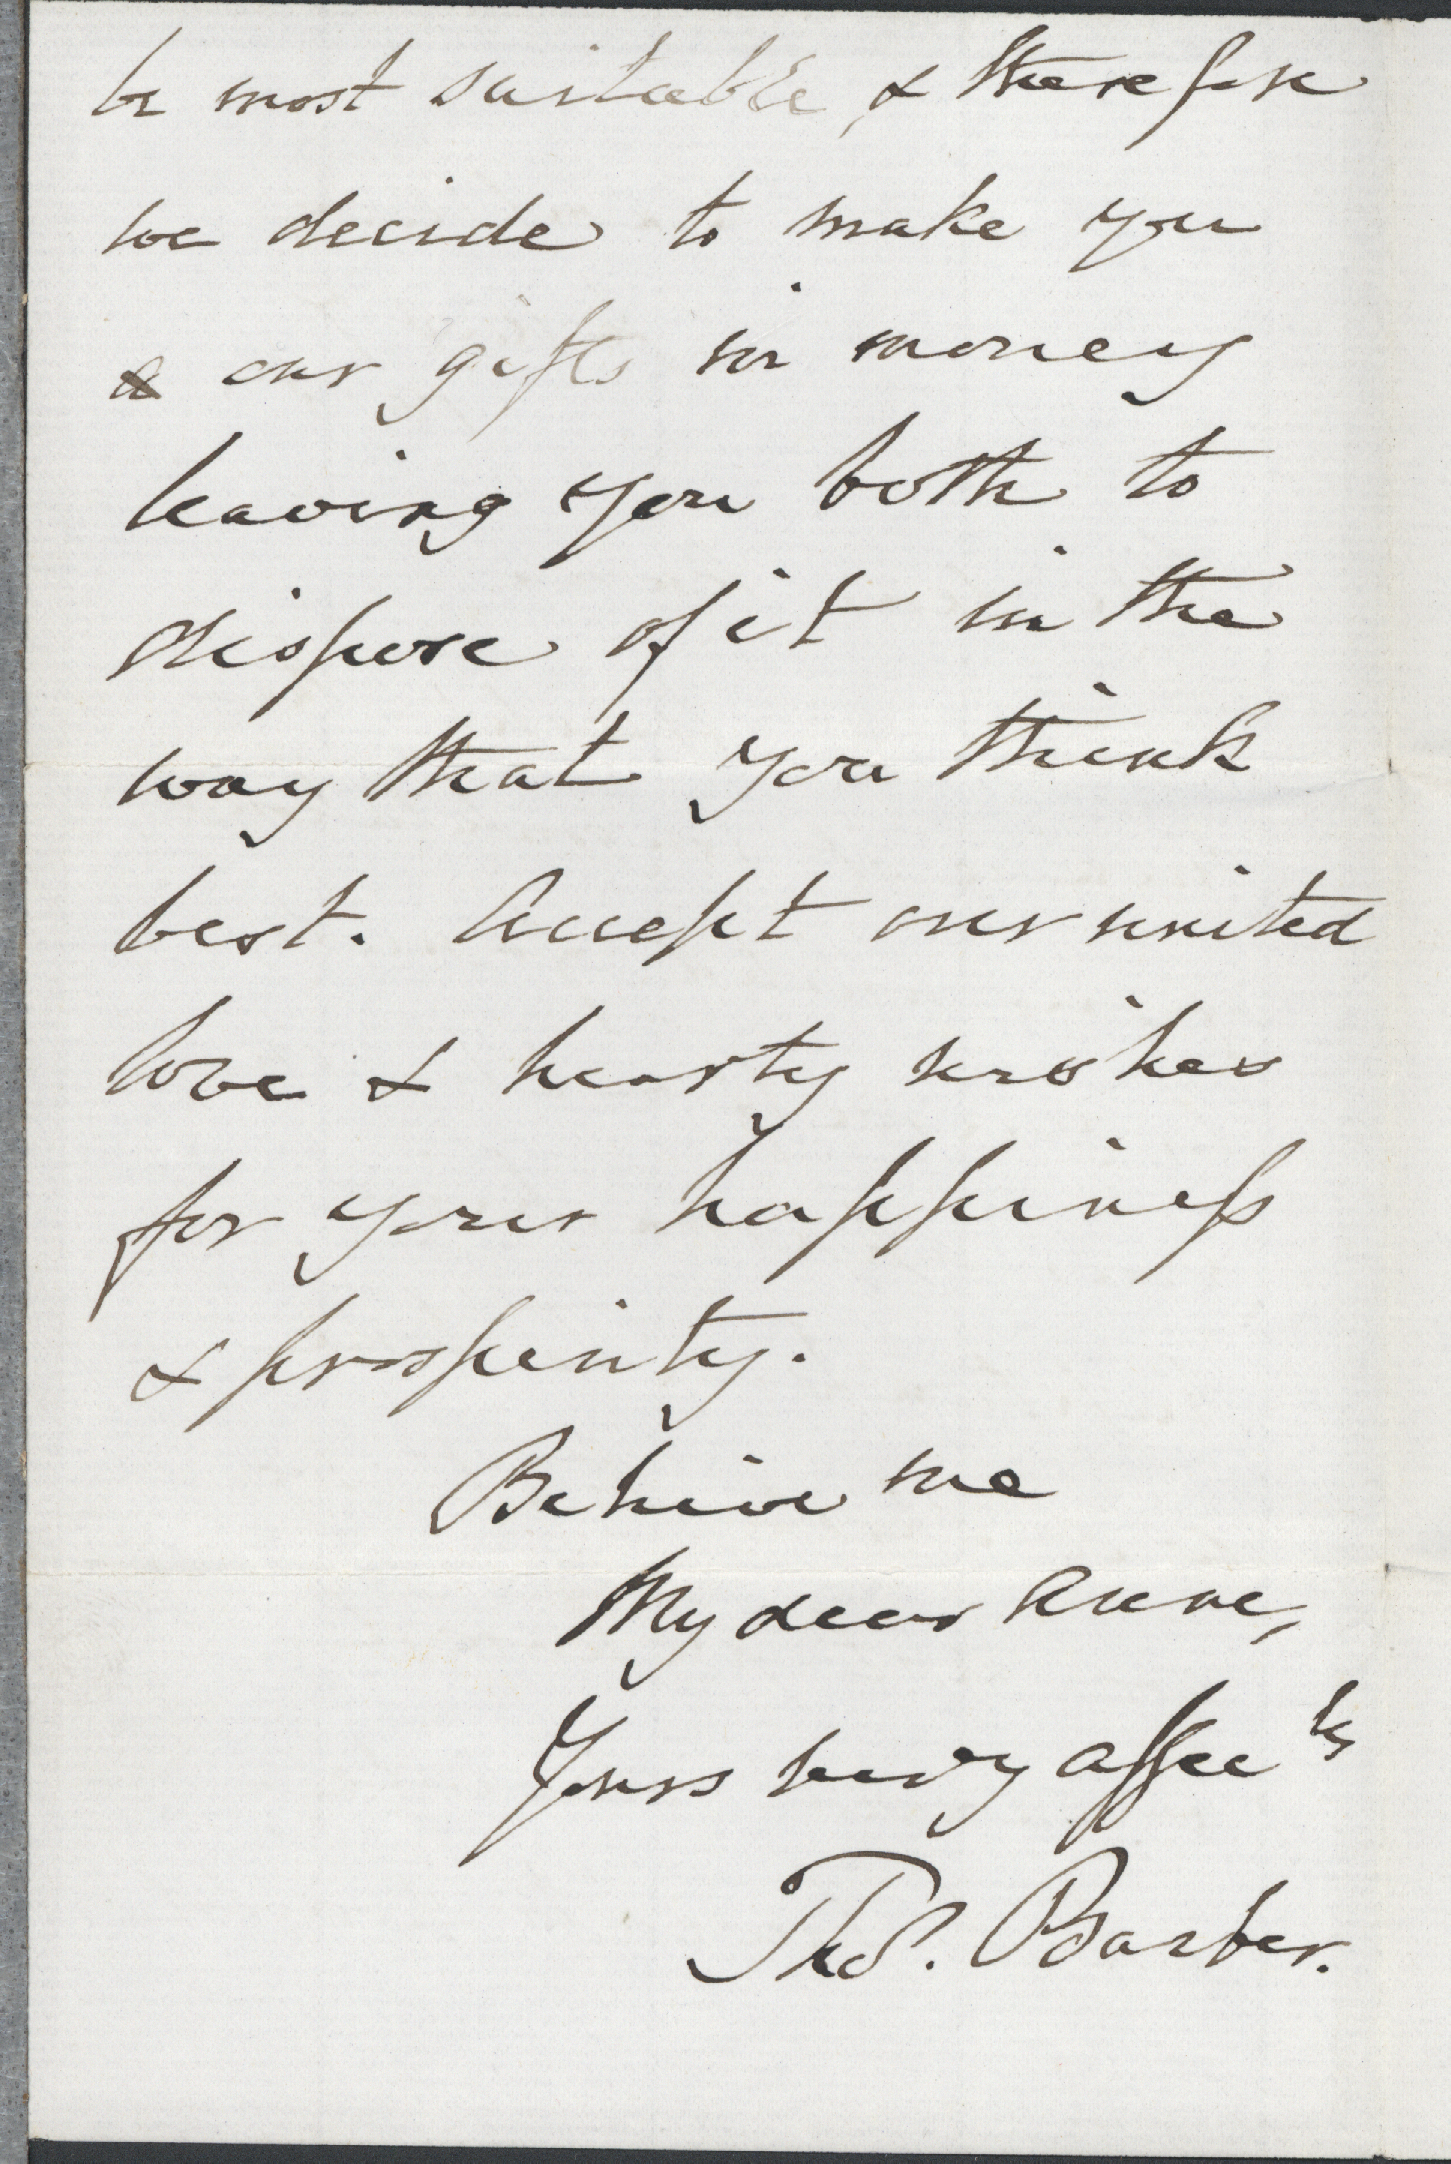 be most suitable, & therefore
we decide to make you
a our gifts in money
leaving you both to
dispose of it in the
way that you think
best. Accept our united
love & hearty wishes
for your happiness
& prosperity.
Believe me
My dear Anne,
Yours very affecly
Thos. Barber.